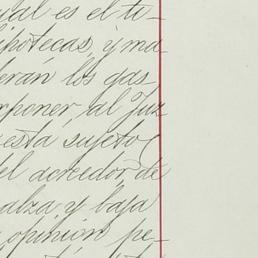 ual es el ti-
ipotecas, y ma
erán los gas
rponer, al Juz
está sujeto
el acreedor de
alza y baja
opinión pe-